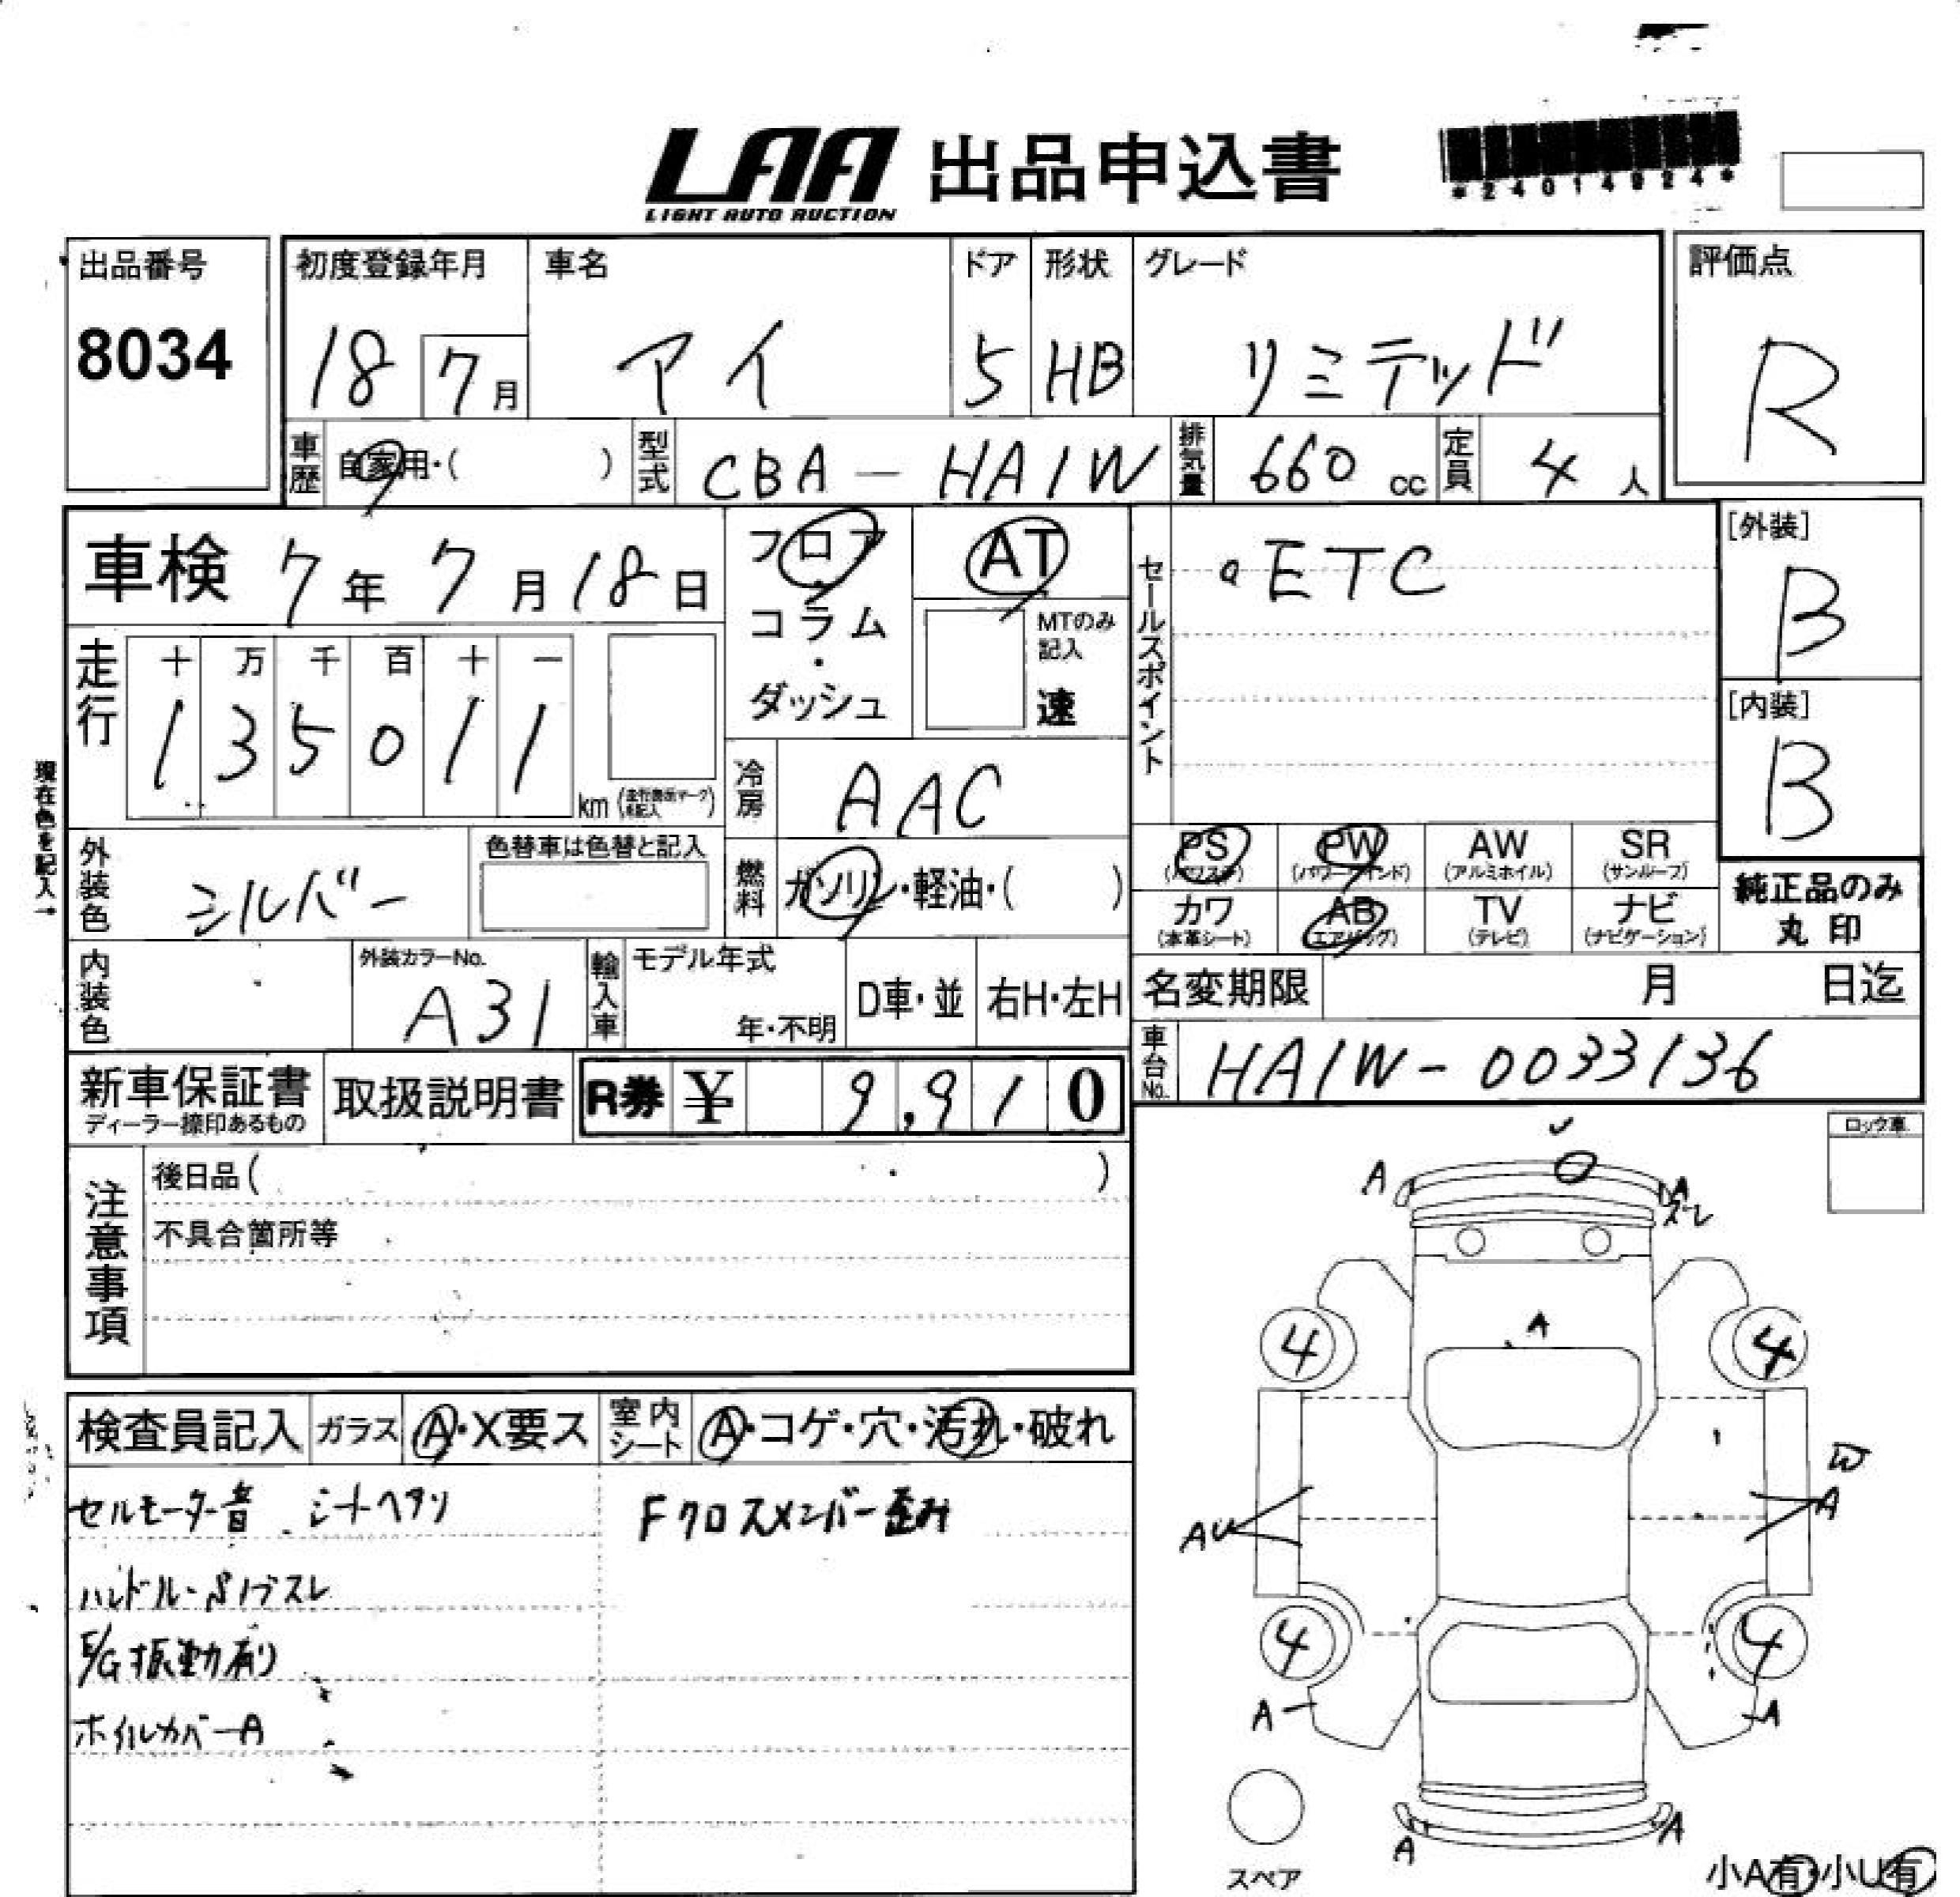 LAA 出品申込書
LIGHT AUTO AUCTION
*24014924*
出品番号 初度登録年月 車名 ドア 形状 グレード 評価点
8034 18 7月 アイ 5 HB リミテッド R
車歴 自家用・( ) 型式 CBA-HA1W 排気量 660 cc 定員 4 人
車検 7年 7月 18日 フロア・コラム・ダッシュ AT
MTのみ記入 速
セールスポイント ・ETC
[外装] B
走行 十 万 千 百 十 一
1 3 5 0 1 1 km
[内装] B
冷房 AAC
現在色を記入→
外装色 シルバー 色替車は色替と記入
燃料 ガソリン・軽油・( )
PS (パワステ) PW (パワーウインド) AW (アルミホイル) SR (サンルーフ)
カワ (本革シート) AB (エアバッグ) TV (テレビ) ナビ (ナビゲーション)
純正品のみ丸印
内装色 外装カラーNo. A31 輸入車 モデル年式 年・不明 D車・並 右H・左H
名変期限 月 日迄
車台No. HA1W-0033136
新車保証書 ディーラー捺印あるもの 取扱説明書 R券 ¥ 9,910
ロック車
注意事項 後日品( )
不具合箇所等
検査員記入 ガラス A・X要ス 室内シート A・コゲ・穴・汚れ・破れ
セルモーター音 シートヘタリ Fクロスメンバー歪み
ハンドル・S/ブスレ
E/G振動有り
ホイルカバーA
A A
スレ
A
4 4
W
AU A
4 4
A A
A A
スペア
小A有・小U有